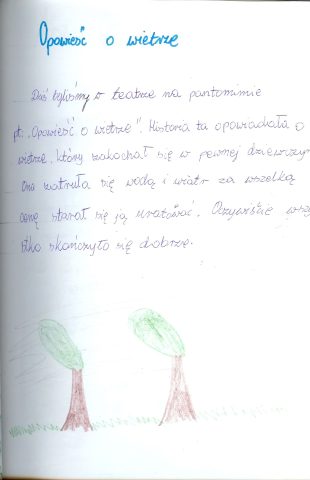 Opowieść o wietrze
Dziś byliśmy w teatrze na pantomimie
pt. „Opowieść o wietrze". Historia ta opowiadała o
wietrze, który zakochał się w pewnej dziewczynie
Ona zatruła się wodą i wiatr za wszelką
cenę starał się ją uratować. Oczywiście wszy
stko skończyło się dobrze.